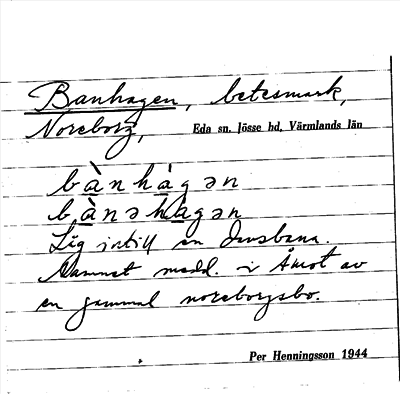 Banhagen, betesmark,
Noreborg, Eda sn. Jösse hd, Värmlands län
bànhàgən
bànəhàgən
Låg intill en dansbana.
Namnet medd. i Åmot av
en gammal noreborgsbo.
Per Henningsson 1944